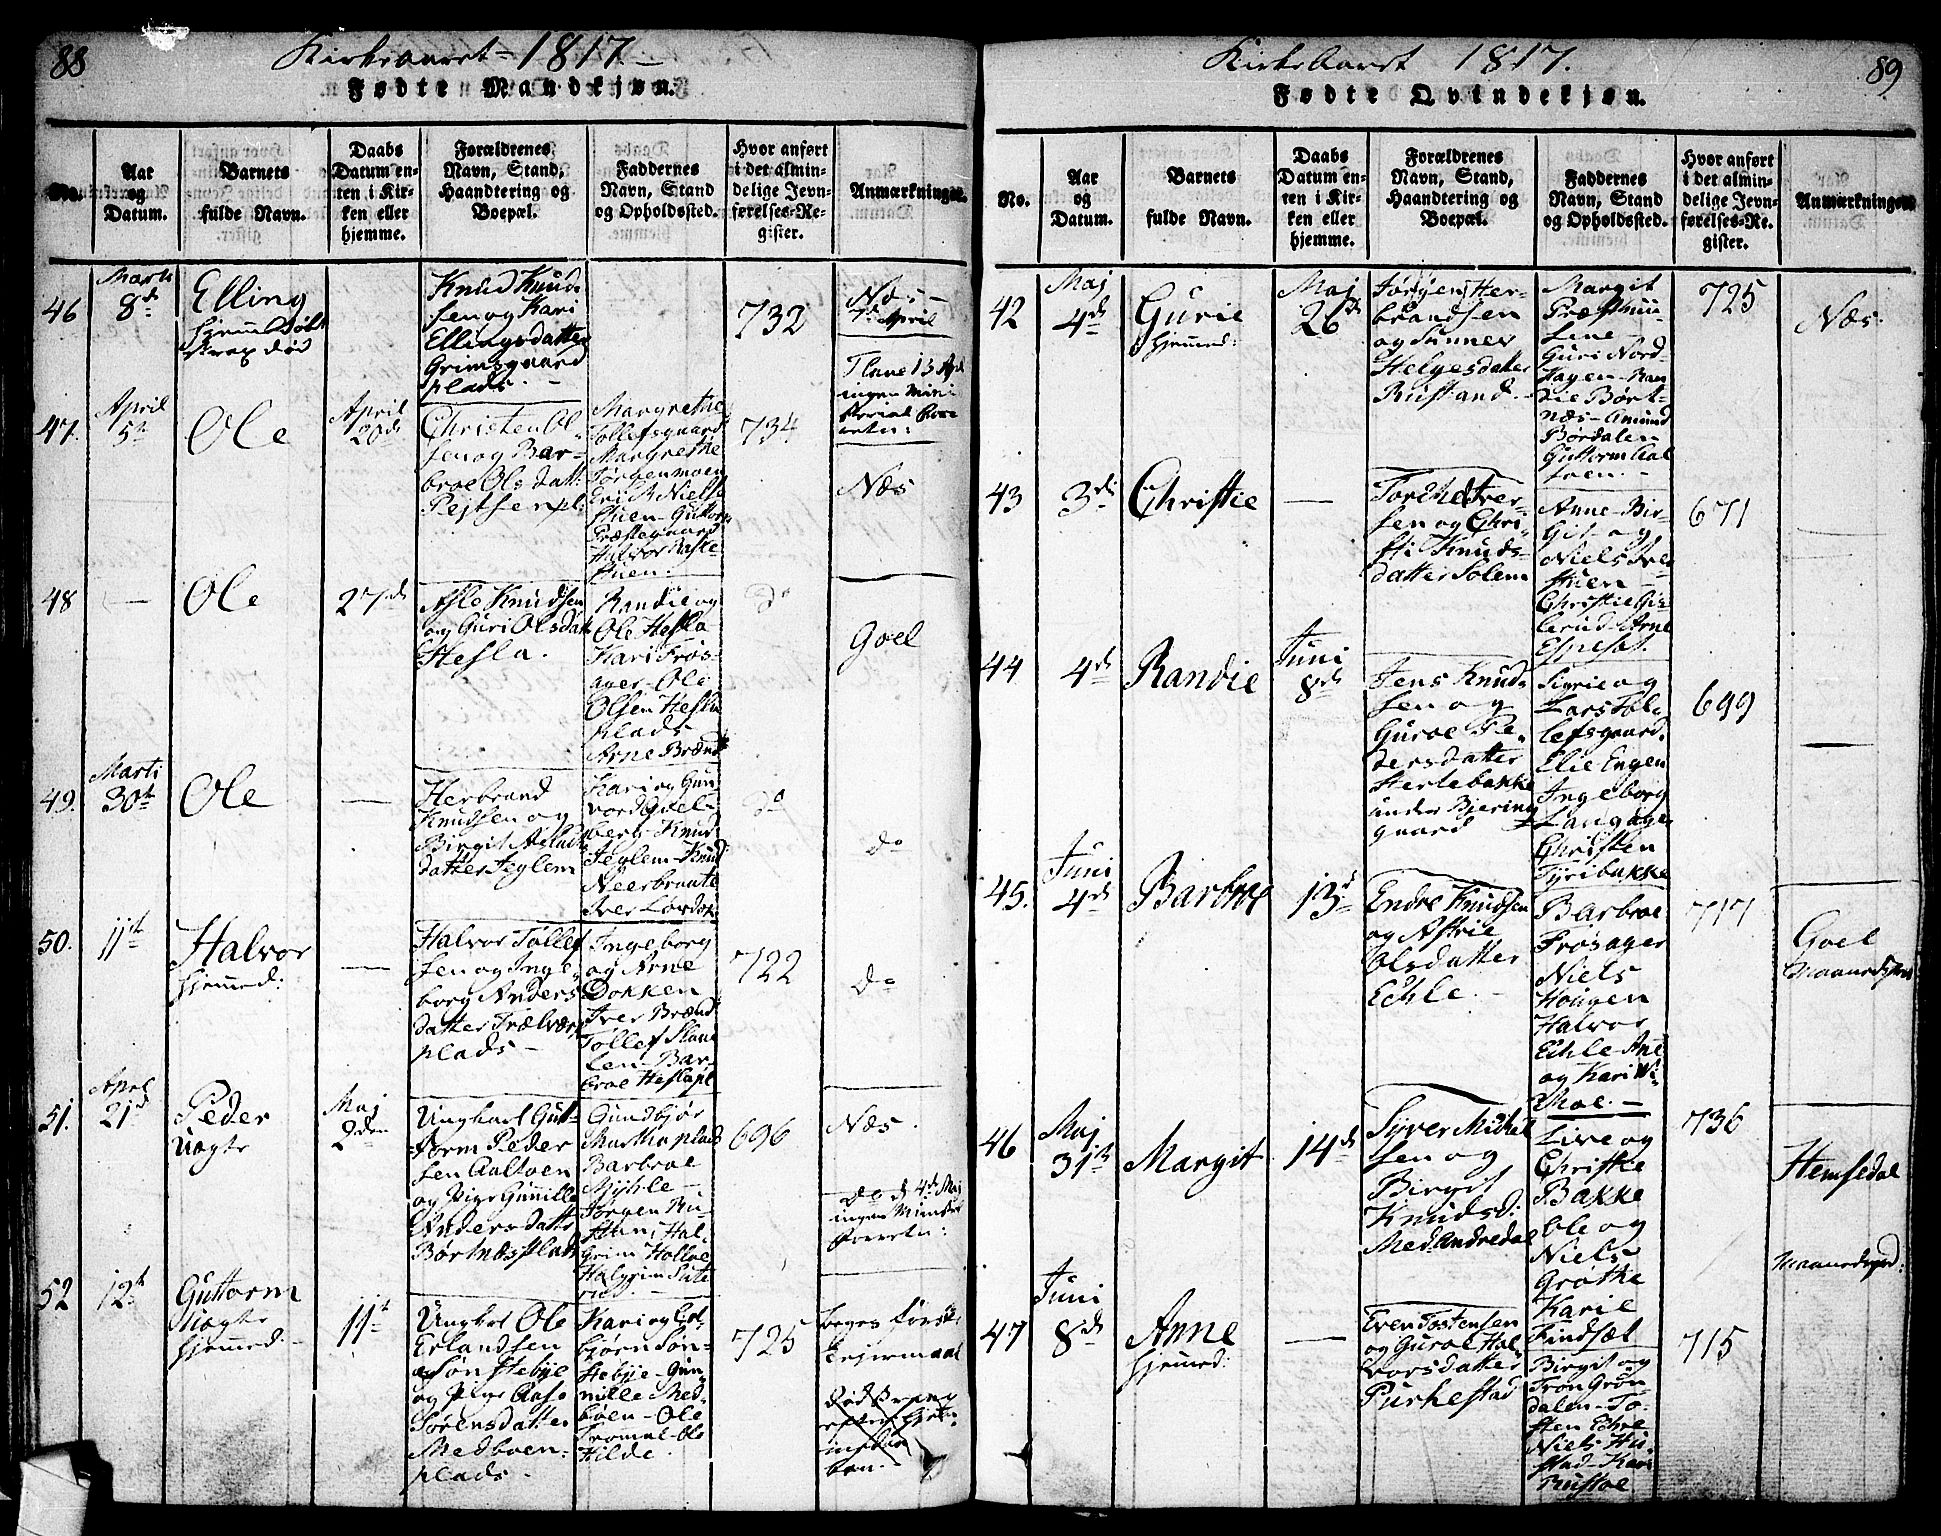 88
Kirkeaaret 1817
Fødte Mandkjøn.
No.
Aar
og
Datum.
Barnets
fulde Navn.
Daabs
Datum en-
ten i Kir-
ken eller
hjemme.
Forældrenes
Navn, Stand,
Haandtering og
Boepæl.
Faddernes
Navn, Stand
og Opholdssted.
Hvor anført
i det almin-
delige Jevn-
førelses-Re-
gister.
Anmærkninger.
46
Marti
8de
Elling
hjemmedøbt
strax død
Knud Knud-
sen og Kari
Ellingsdatter
Grimsgaard
plads.
732
Næs
4de April
47.
April
5te
Ole
April
20de
Christen Ol-
sen og Bar-
broe Olsdatt:
Pejtsenpl:
Margrethe
Tollefsgaard
Margrethe
Jørgenmoen
Niels
Guttorm
Præstegaard
Halvor
734
Næs
48
—
Ole
27de
Asle Knudsen
og Guri Olsdatt
Hesla.
Randie og
Ole Hesla
Kari Frøs-
ager - Ole
Olsen Hesla
plads
Arne Brænd
do
Goel
49.
Marti
30te
Ole
—
Herbrand
Knudsen og
Birgit Aslacks
datter Jeglem
Kari og Gun
vord Goel-
berg - Knud
Jeglem - Knud
Neerbraate
Iver
do
do
50.
11te
Halvor
hjemmed:
—
Halvor Tollef
sen og Inge-
borg Anders
datter Trælværk
plads -
Ingeborg
og Arne
Dokken
Iver Brænd
Tollef
Bar-
broe Heslapl
722
do
51.
April
21de
Peder
Uægte
Maj
2den
Ungkarl Gut-
torm Peder
sen Aaltoen
og Pige Gunnille
Anders datter
Børtnæs Plads
Gundbjør
Marthoplads
Barbroe
Myhle -
Jørgen Ru-
stan, Hal-
grim Hollae
Halgrim
696
Næs.
do d 4de Maj
ingen
52
12te
Guttorm
Uægte
hjemmed: -
11te
Ungkal Ole
Erlandsen
Sønstebye
og Pige Aase
Sørensdatter
Medboen-
plads.
Kari og
bjørn Søn-
stebye - Gun-
nille Med-
bøen - Ole
Tromal - Ole
Hilde.
725
begges første
Lejermaal
død
efter hjem-
89
Kirkeaaret 1817.
Fødte Qvindekjøn.
No.
Aar
og
Datum.
Barnets
fulde Navn.
Daabs
Datum en-
ten i Kir-
ken eller
hjemme.
Forældrenes
Navn, Stand,
Haandtering og
Boepæl.
Faddernes
Navn, Stand
og Opholdssted.
Hvor anført
i det almin-
delige Jevn-
førelses-Re-
gister.
Anmærkninger.
42
Maj
4de
Gurie
hjemmed:
Maj
26de
Jørgen Her-
brandsen
og Sünnev
Helgesdatter
Rustand.
Margit
Præsthuu-
sene
Guri Nord-
hagen - Ran
die Børt-
næs - Amund
Børdalen
Guttorm Aal
toen -
725
Næs.
43
3de
Christie
—
Torchel Iver
sen og Chri-
sti Knuds-
datter Solem
Anne - Bir-
git og
Niels Tve-
stuen -
Christie Gis-
lerud - Arne
Espeset.
671
44
4de
Randie
Juni
8de
Jens Knud-
sen og
Guroe Pe-
dersdatter
Herlebakke
under Bjering-
gaard
Sigrie og
Lars Tol-
lefsgaard.
Elie Engen
Ingeborg
Langager
Christen
Tyribakke
699
—
45.
Juni
4de
Barbroe
13de
Endre Knudsen
og Astrie
Olsdatter
Echle.
Barbroe
Frøsager
Niels
Hougen
Halvor
Echle - Ane
og Kari Wi-
Moe. -
717
Goel
Maanedsgud
46
Maj
31te
Margit
14de
Syver Michel
sen og
Birgit
Knudsd:
Medandredal
Live og
Christie
Bakke
Ole og
Niels
Grøthe
Karie
Findsæt
736
Hemsedal
47
Juni
8de
Anne
hjemmed:
—
Even Tostensen
og Guroe Hal
vorsdatter
Purkestad
Birgit og
Tron Grøn-
dalen - To-
sten Echre
Niels Hu-
stad - Kari
Rustoe
715
Maanedsgud: